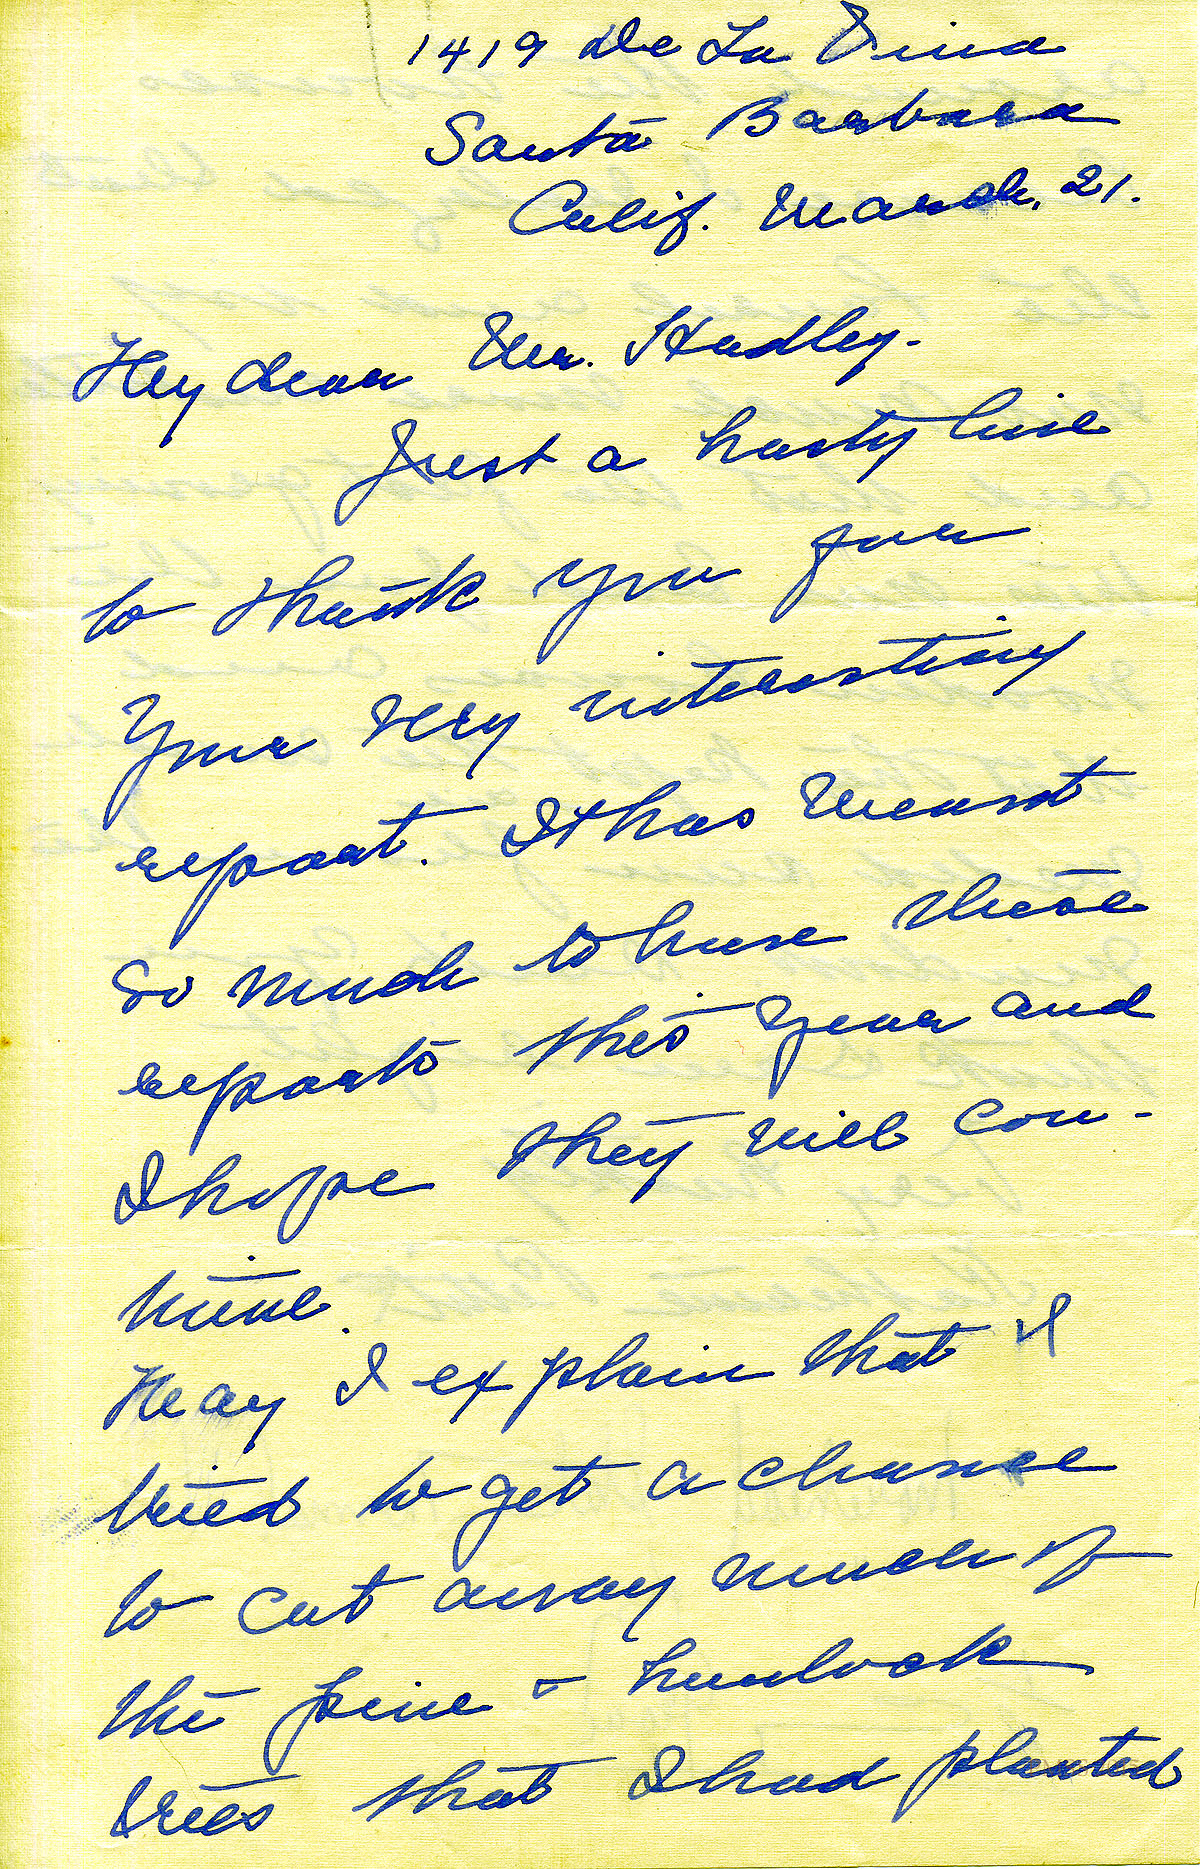 1419 De La Vina
Santa Barbara
Calif. March. 21.
My dear Mr. Hadley.
Just a hasty line
to thank you for
your very interesting
report. It has meant
so much to have these
reports this year and
I hope they will con-
tinue.
May I explain that I
tried to get a chance
to cut away much of
the pine & hemlock
trees that I had planted